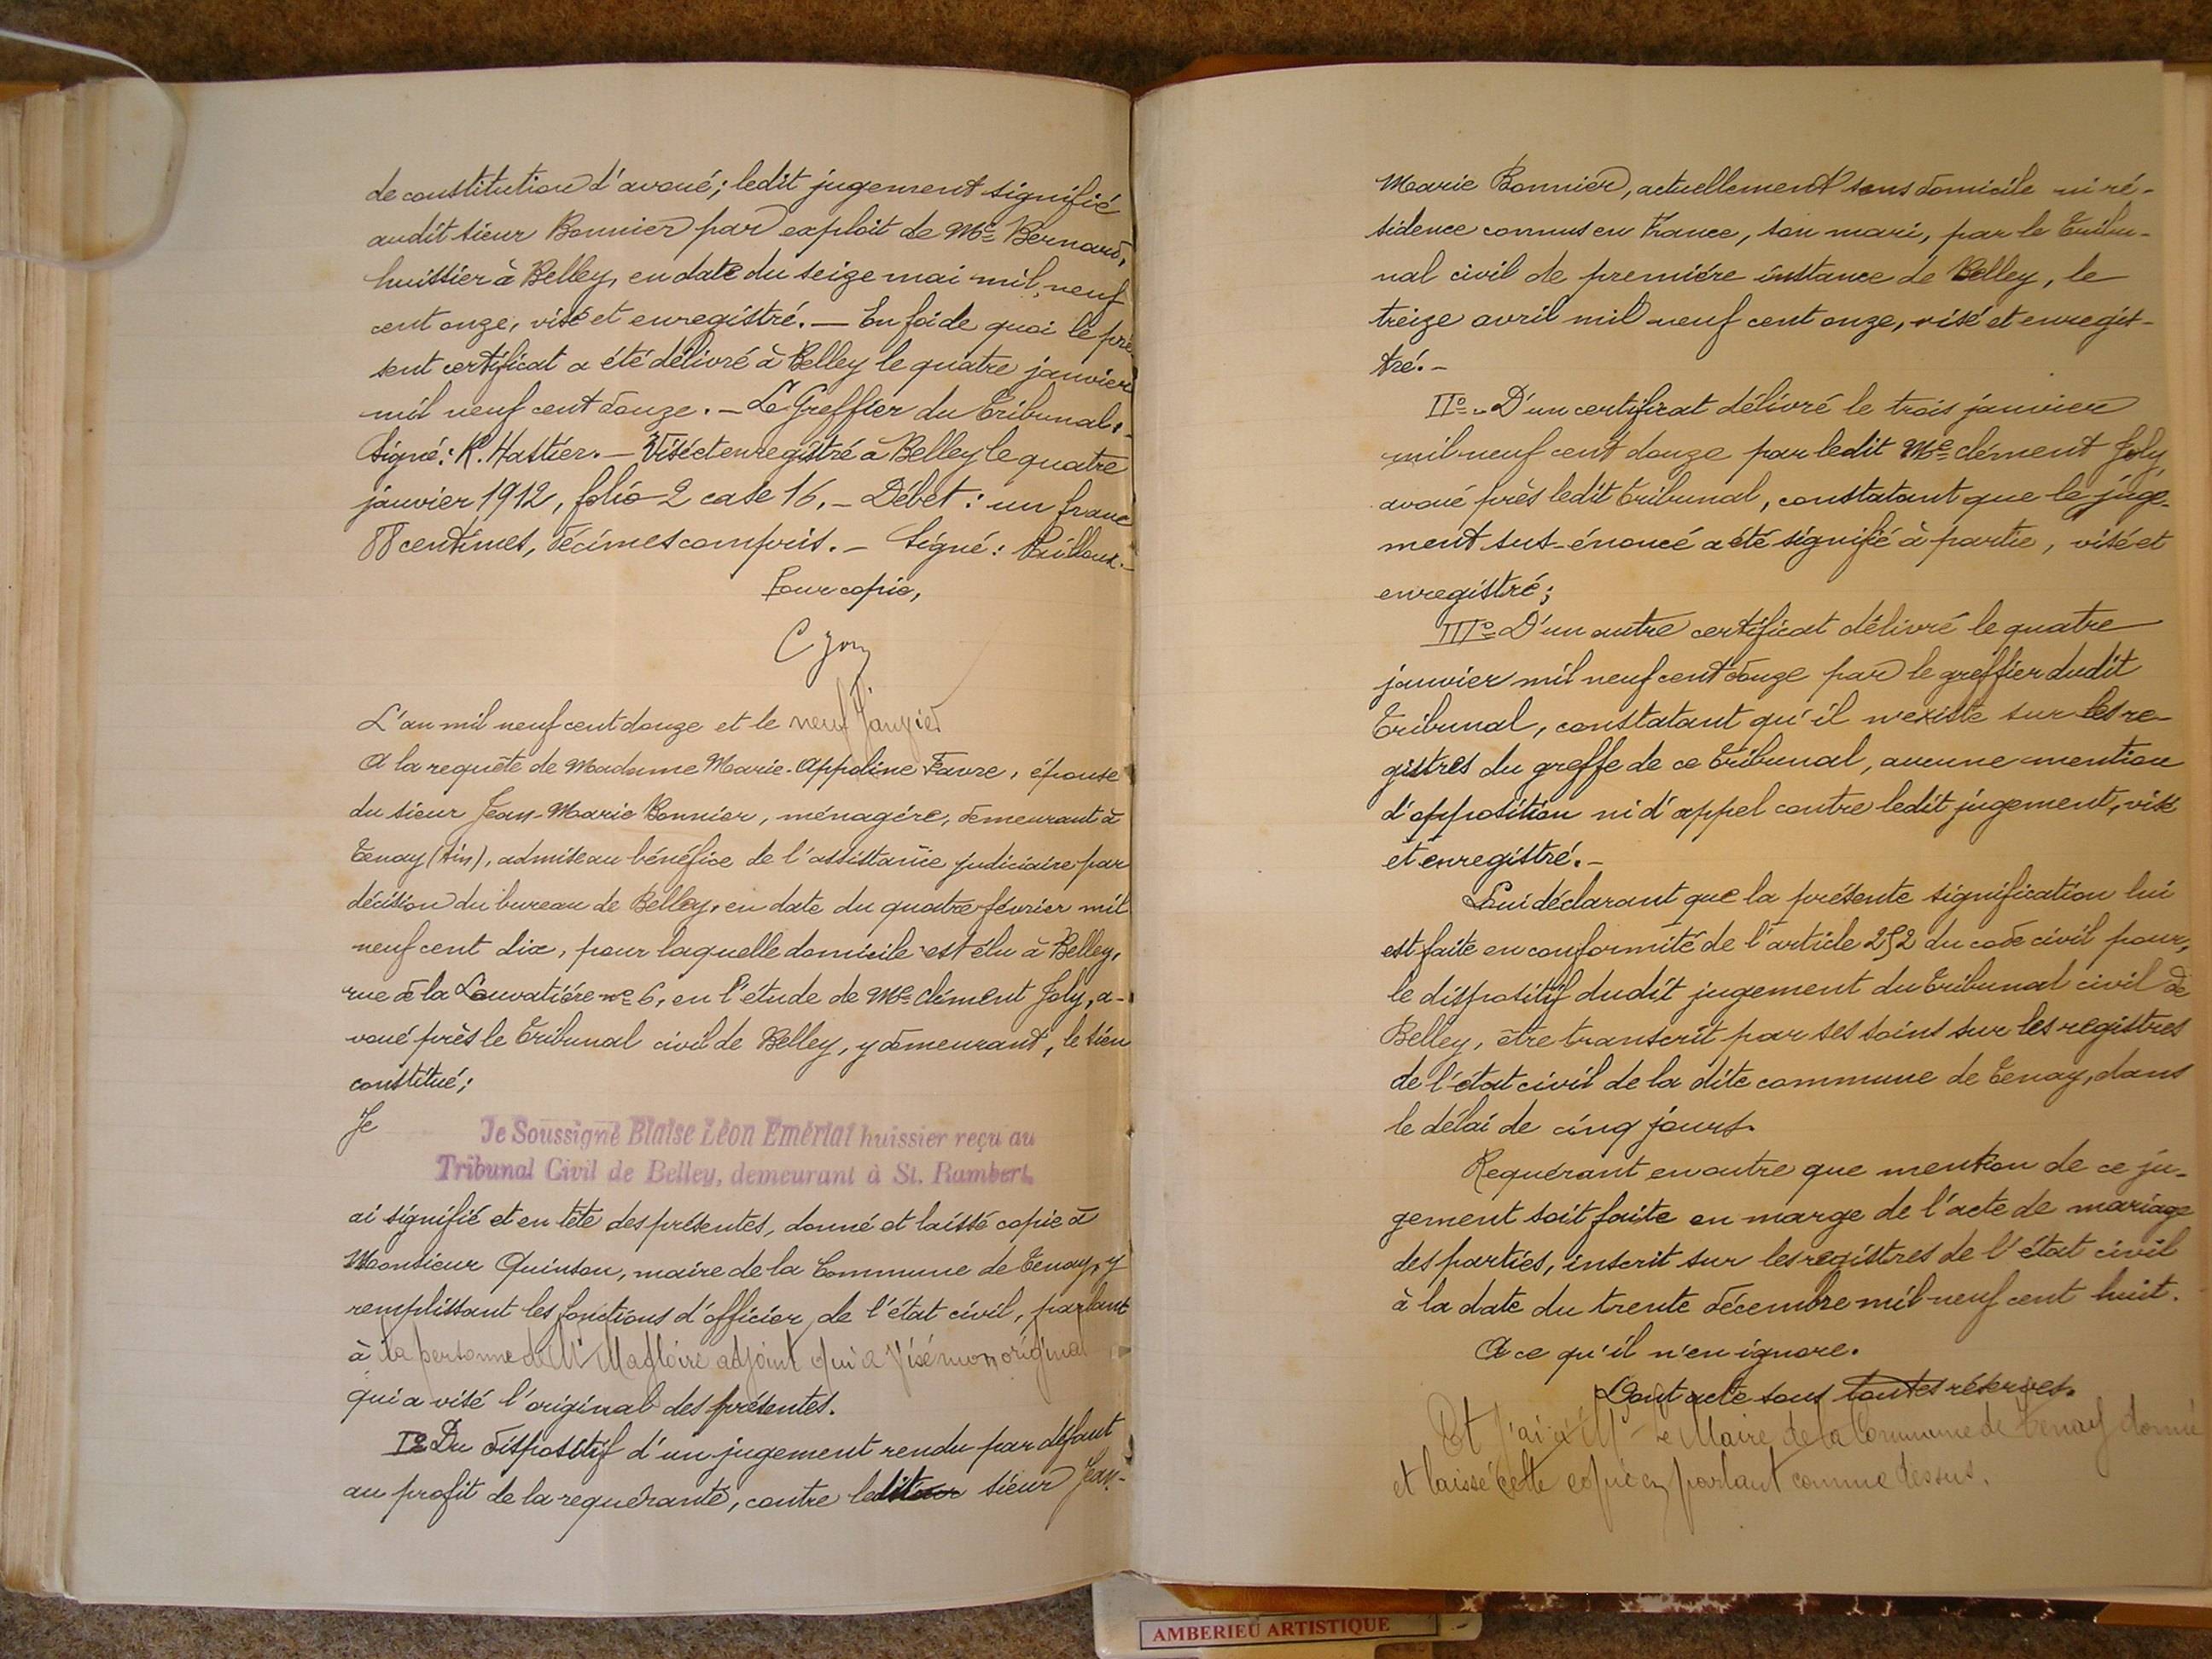 de constitution d'avoué; ledit jugement signifié
audit sieur Bonnier par exploit de Me Bernard,
huissier à Belley, en date du seize mai mil neuf
cent onze, visé et enregistré. — En foi de quoi le pré
sent certificat a été délivré à Belley le quatre janvier
mil neuf cent douze. — Le Greffier du Tribunal. -
Signé: R. Hastier. — Visé et enregistré à Belley le quatre
janvier 1912, folio 2 case 16. — Débet: un franc
88 centimes, décimes compris. — Signé:
Pour copie,
C Joly
L'an mil neuf cent douze et le neuf Janvier
A la requête de Madame Marie-Appoline Favre, épouse
du sieur Jean-Marie Bonnier, ménagère, demeurant à
Tenay (Ain), admise au bénéfice de l'assistance judiciaire par
décision du bureau de Belley, en date du quatre février mil
neuf cent dix, pour laquelle domicile est élu à Belley,
rue de la Louvatière no 6, en l'étude de Me Clément Joly, a-
voué près le Tribunal civil de Belley, y demeurant, le sien
constitué;
Je
Je Soussigné Blaise Léon Emériat huissier reçu au
Tribunal Civil de Belley, demeurant à St. Rambert,
ai signifié et en tête des présentes, donné et laissé copie à
Monsieur Quinson, maire de la Commune de Tenay, y
remplissant les fonctions d'officier de l'état civil, parlant
à la personne de Mr Magloire adjoint qui a visé mon original
qui a visé l'original des présentes.
I° Du dispositif d'un jugement rendu par défaut
au profit de la requérante, contre ledit sieur Jean-
Marie Bonnier, actuellement sans domicile ni ré-
sidence connus en France, son mari, par le Tribu-
nal civil de première instance de Belley, le
treize avril mil neuf cent onze, visé et enregis-
tré. -
II° - D'un certificat délivré le trois janvier
mil neuf cent douze par ledit Me Clément Joly,
avoué près ledit Tribunal, constatant que le juge-
ment sus-énoncé a été signifié à partie, visé et
enregistré;
III° D'un autre certificat délivré le quatre
janvier mil neuf cent douze par le greffier dudit
Tribunal, constatant qu'il n'existe sur les re-
gistres du greffe de ce Tribunal, aucune mention
d'opposition ni d'appel contre ledit jugement, visé
et enregistré. -
Lui déclarant que la présente signification lui
est faite en conformité de l'article 252 du code civil pour,
le dispositif dudit jugement du Tribunal civil de
Belley, être transcrit par ses soins sur les registres
de l'état civil de la dite commune de Tenay, dans
le délai de cinq jours.
Requérant en outre que mention de ce ju-
gement soit faite en marge de l'acte de mariage
des parties, inscrit sur les registres de l'état civil
à la date du trente décembre mil neuf cent huit.
A ce qu'il n'en ignore.
Dont acte sous toutes réserves.
Et j'ai à Mr Le Maire de la Commune de Tenay donné
et laissé cette copie en parlant comme dessus.
AMBERIEU ARTISTIQUE